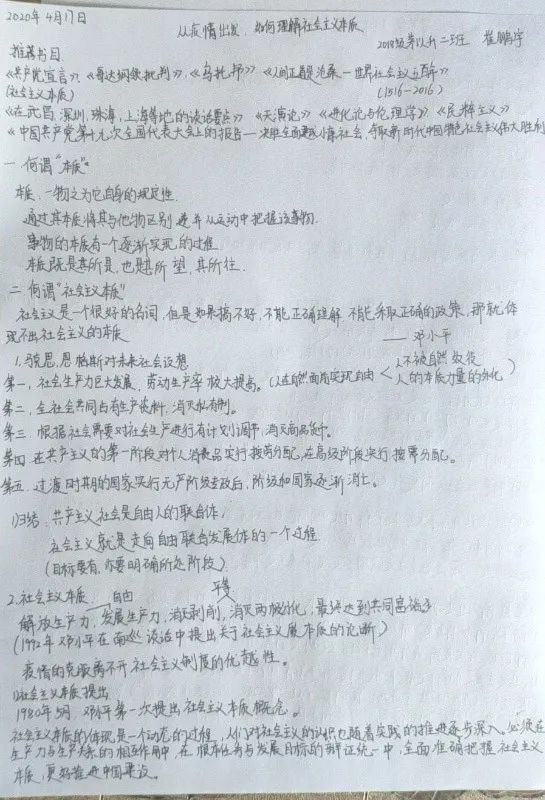 2020年4月17日
从疫情出发,如何理解社会主义本质
2019级 二班 崔鹏宇
推荐书目
《共产党宣言》、《哥达纲领批判》、《乌托邦》《人间正道是沧桑—世界社会主义五百年》
(社会主义本质) (1516-2016)
《在武昌、深圳、珠海、上海等地的谈话要点》《天演论》《进化论与伦理学》《民粹主义》
《中国共产党第十九次全国代表大会上的报告—决胜全面建成小康社会,夺取新时代中国特色社会主义伟大胜利
一.何谓“本质”.
本质,一物之为它自身的规定性.
通过其本质将其与他物区别 并从运动中把握该事物.
事物的本质有一个逐渐实现的过程
本质既是其所是,也是其所望,其所往.
二.何谓“社会主义本质”
社会主义是一个很好的名词,但是如果搞不好,不能正确理解,不能采取正确的政策,那就体
现不出社会主义的本质
——邓小平
1.马克思,恩格斯对未来社会设想
第一,社会生产力巨大发展,劳动生产率较大提高。(人在自然面前实现自由
人不被自然奴役
人的本质力量的外化)
第二,全社会共同占有生产资料,消灭私有制。
第三,根据社会需要对社会生产进行有计划调节,消灭商品货币。
第四,在共产主义的第一阶段对个人消费品实行按劳分配,在高级阶段实行按需分配。
第五,过渡时期的国家实行无产阶级专政后,阶级和国家逐渐消亡。
1)归结:共产主义社会是自由人的联合体
社会主义就是走向自由联合发展体的一个过程
(目标要有,亦要明确所处阶段)
2.社会主义本质 自由 平等
解放生产力,发展生产力,消灭剥削,消灭两极分化,最终达到共同富裕
(1992年邓小平在南巡谈话中提出关于社会主义本质的论断)
疫情的克服离不开社会主义制度的优越性。
1)社会主义本质提出
1980年5月,邓小平第一次提出社会主义本质概念。
社会主义本质的体现是一个动态的过程,人们对社会主义的认识也随着实践的推进逐步深入。必须在
生产力与生产关系的相互作用中,在根本任务与发展目标的辩证统一中,全面准确把握社会主义
本质,更好推进中国建设。